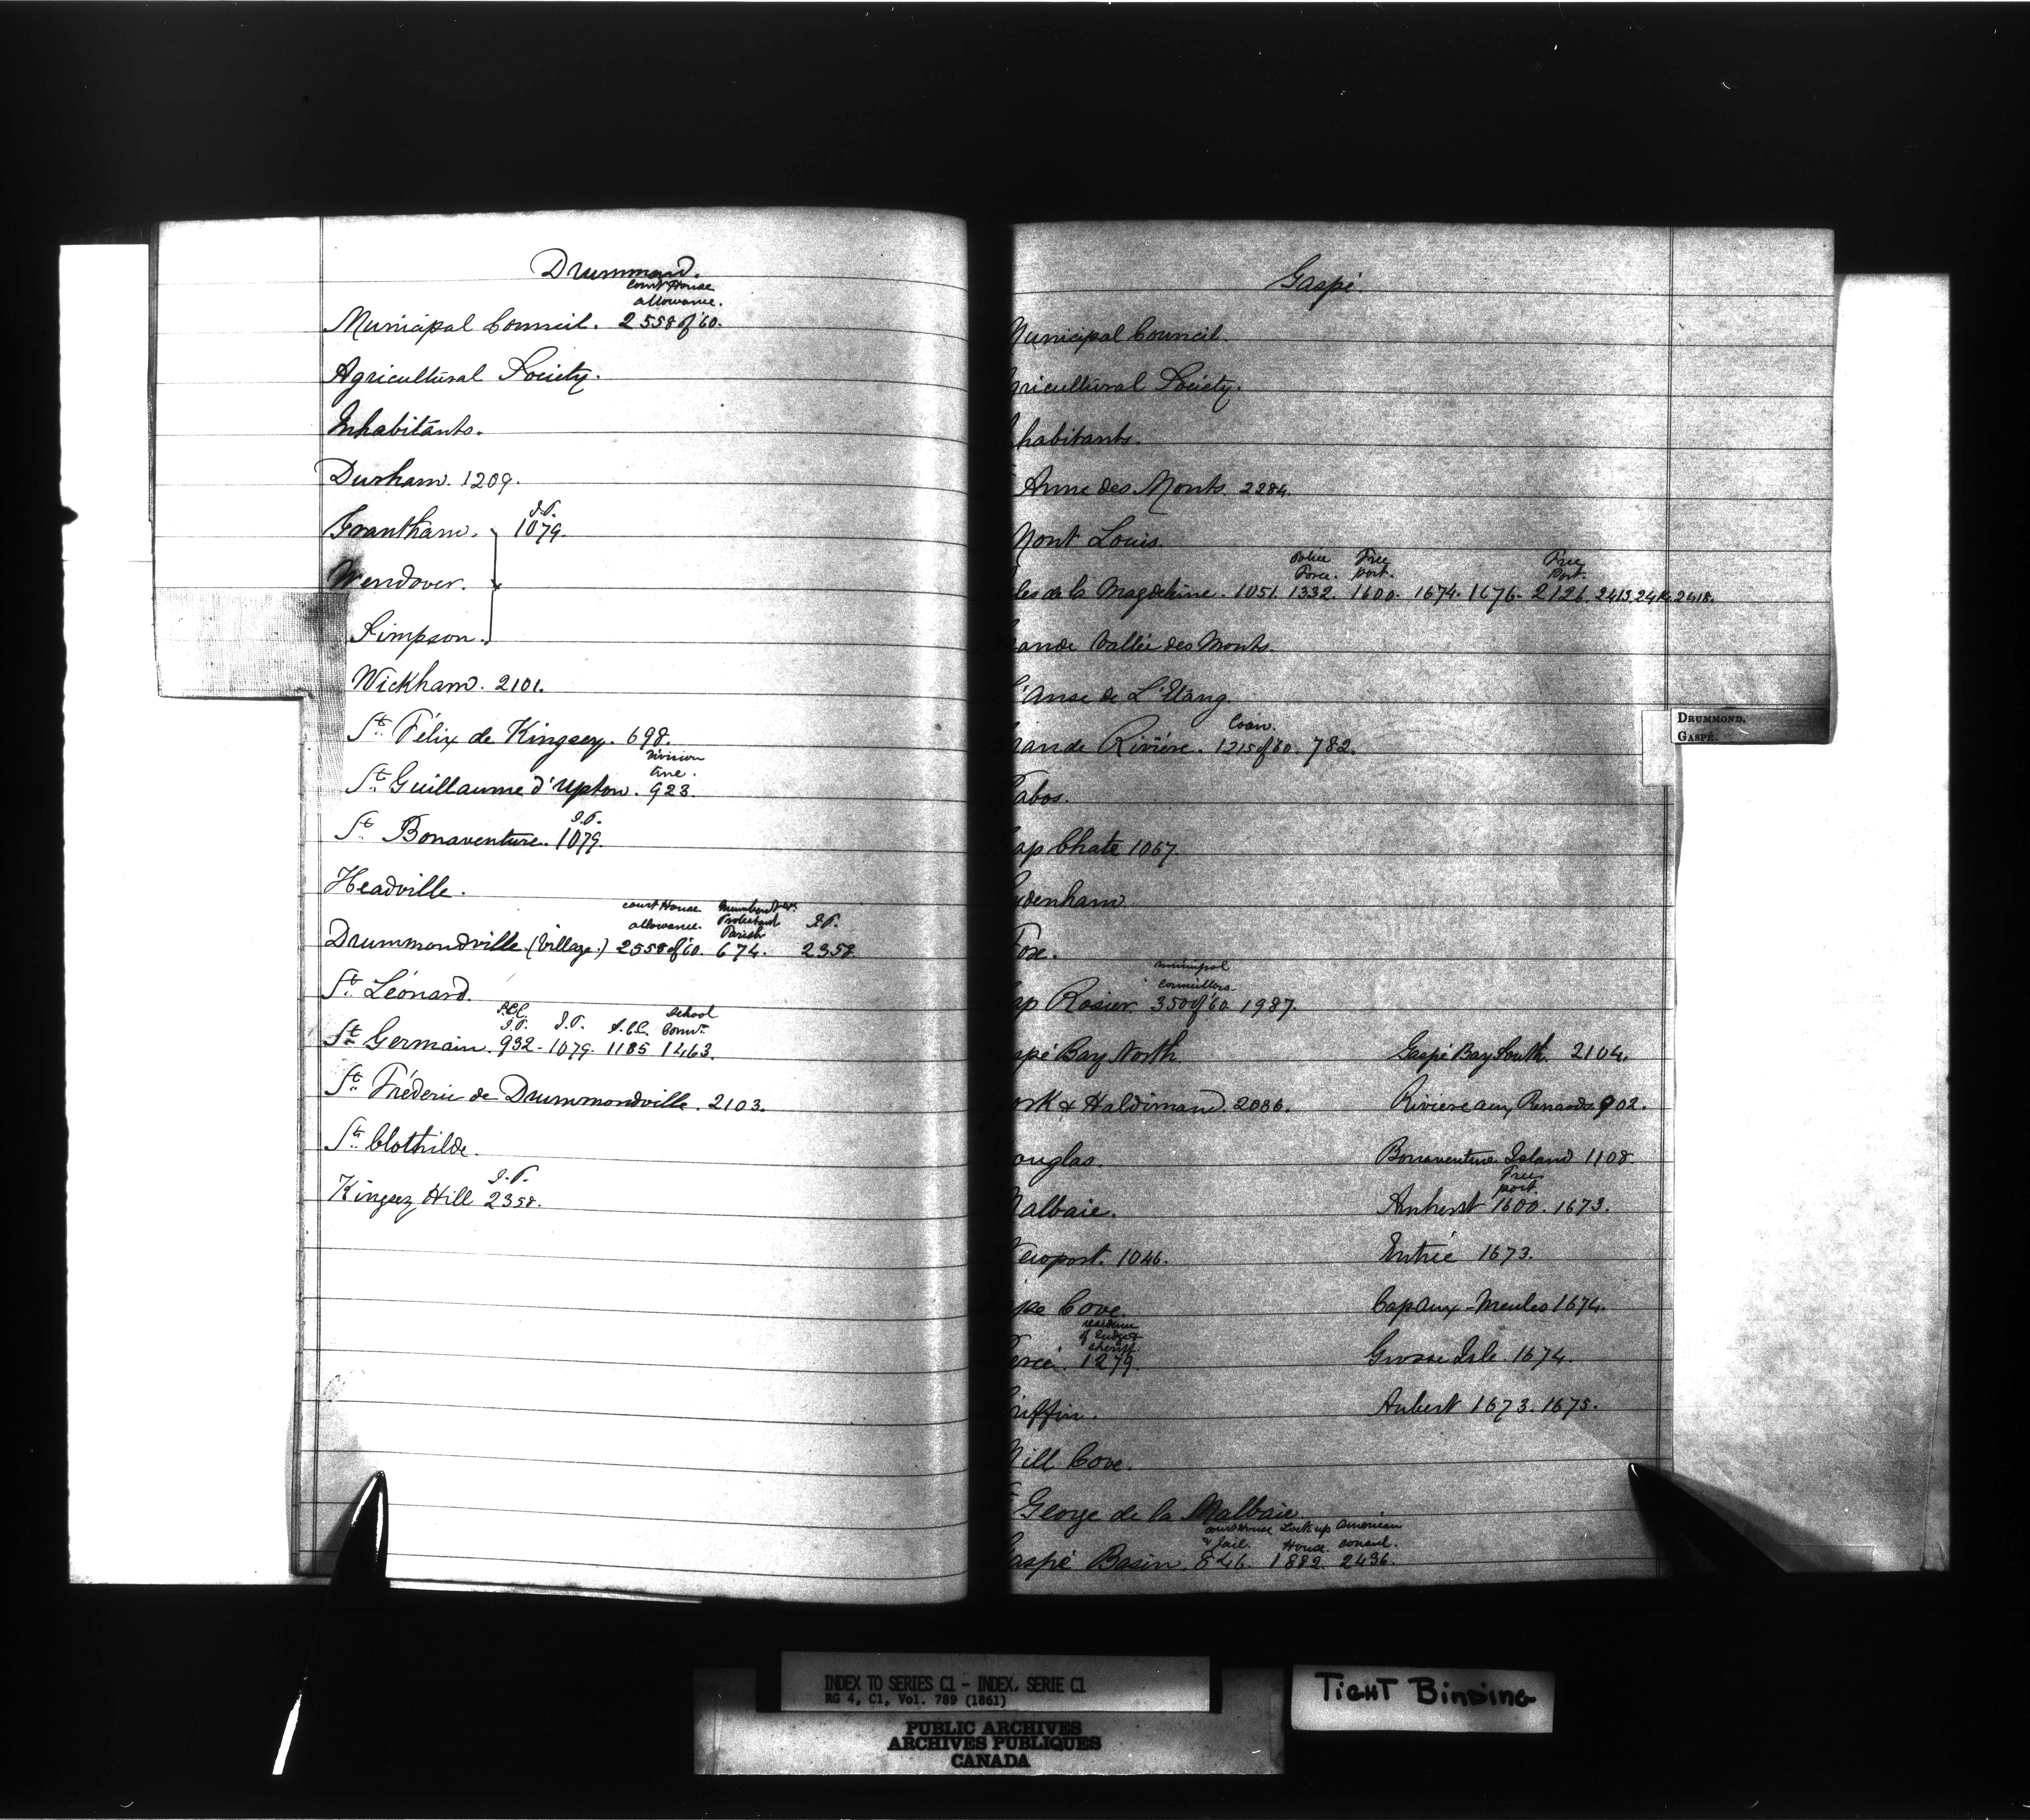 Drummond.
court House
allowance.
Municipal Council. 2558 of '60.
Agricultural Society.
Inhabitants.
Durham. 1209.
J.P.
Grantham. 1079.
Wendover.
Simpson.
Wickham. 2101.
St. Félix de Kingsey. 698.
division
line.
St. Guillaume d'Upton. 923.
J.P.
St. Bonaventure. 1079.
Headville.
court House
allowance. Protestant J.P.
Parish
Drummondville (Village.) 2558 of '60. 674. 2358
St. Léonard.
S.C.C. School
J.P. J.P. S.C.C. Comrs.
St. Germain. 932. 1079. 1185 1463.
St. Fréderic de Drummondville. 2103.
St. Clothilde.
J.P.
Kingsey Hill 2358.
Gaspé.
unicipal Council.
gricultural Society.
habitants.
Anne des Monts. 2284.
Mont Louis.
Police Free Free
Force. port. Port.
les de la Magdeleine. 1051. 1332. 1600. 1674. 1676. 2126. 2413. 2414. 2418.
ande Vallée des Monts.
L'Anse de L'Etang.
Loan.
rande Rivière. 1215 of '60. 782.
abos.
ap Chate 1067.
ydenham.
Fox.
municipal
councillors
ap Rosier. 350 of '60. 1987.
spé Bay North. Gaspé Bay South. 2104.
ork & Haldimand. 2086. Riviere aux Renards 902.
ouglas. Bonaventure Island 1108.
Free
port.
albaie. Amherst 1600. 1673.
ewport. 1046. Entrée 1673.
ape Cove. Cap aux-Meules 1674.
residence
of Judge &
sheriff.
ercé. 1279. Grosse Isle. 1674.
riffin. Aubert 1673. 1675.
Mill Cove.
George de la Malbaie
court House Lock up American
& Jail. House. consul.
aspé Basin. 846. 1882. 2436.
DRUMMOND.
GASPÉ.
INDEX TO SERIES C1 - INDEX, SERIE C1
RG 4, C1, Vol. 789 (1861)
PUBLIC ARCHIVES
ARCHIVES PUBLIQUES
CANADA
TIGHT BINDING